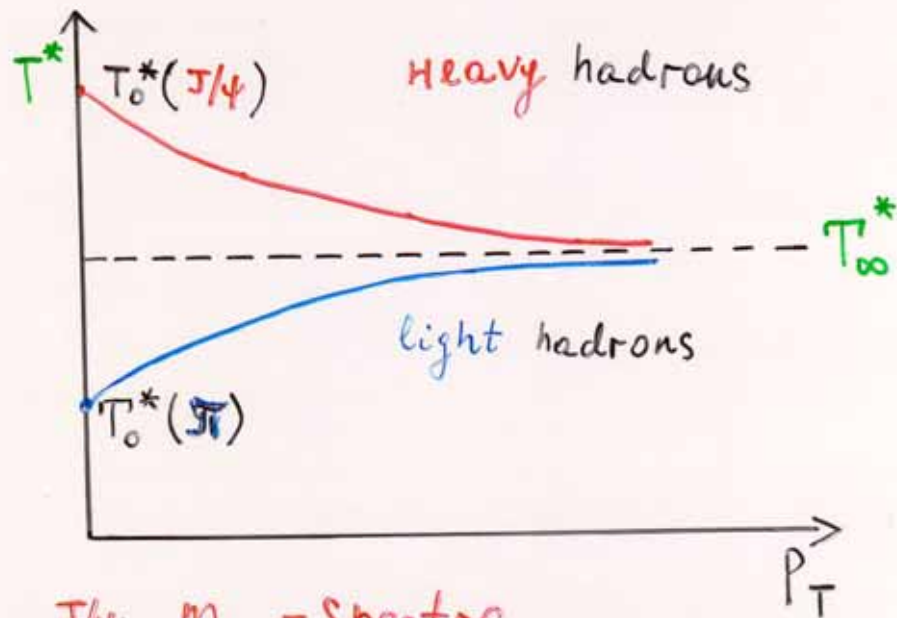 T*
T₀*(J/ψ)
Heavy hadrons
T∞*
light hadrons
T₀*(π)
P_T